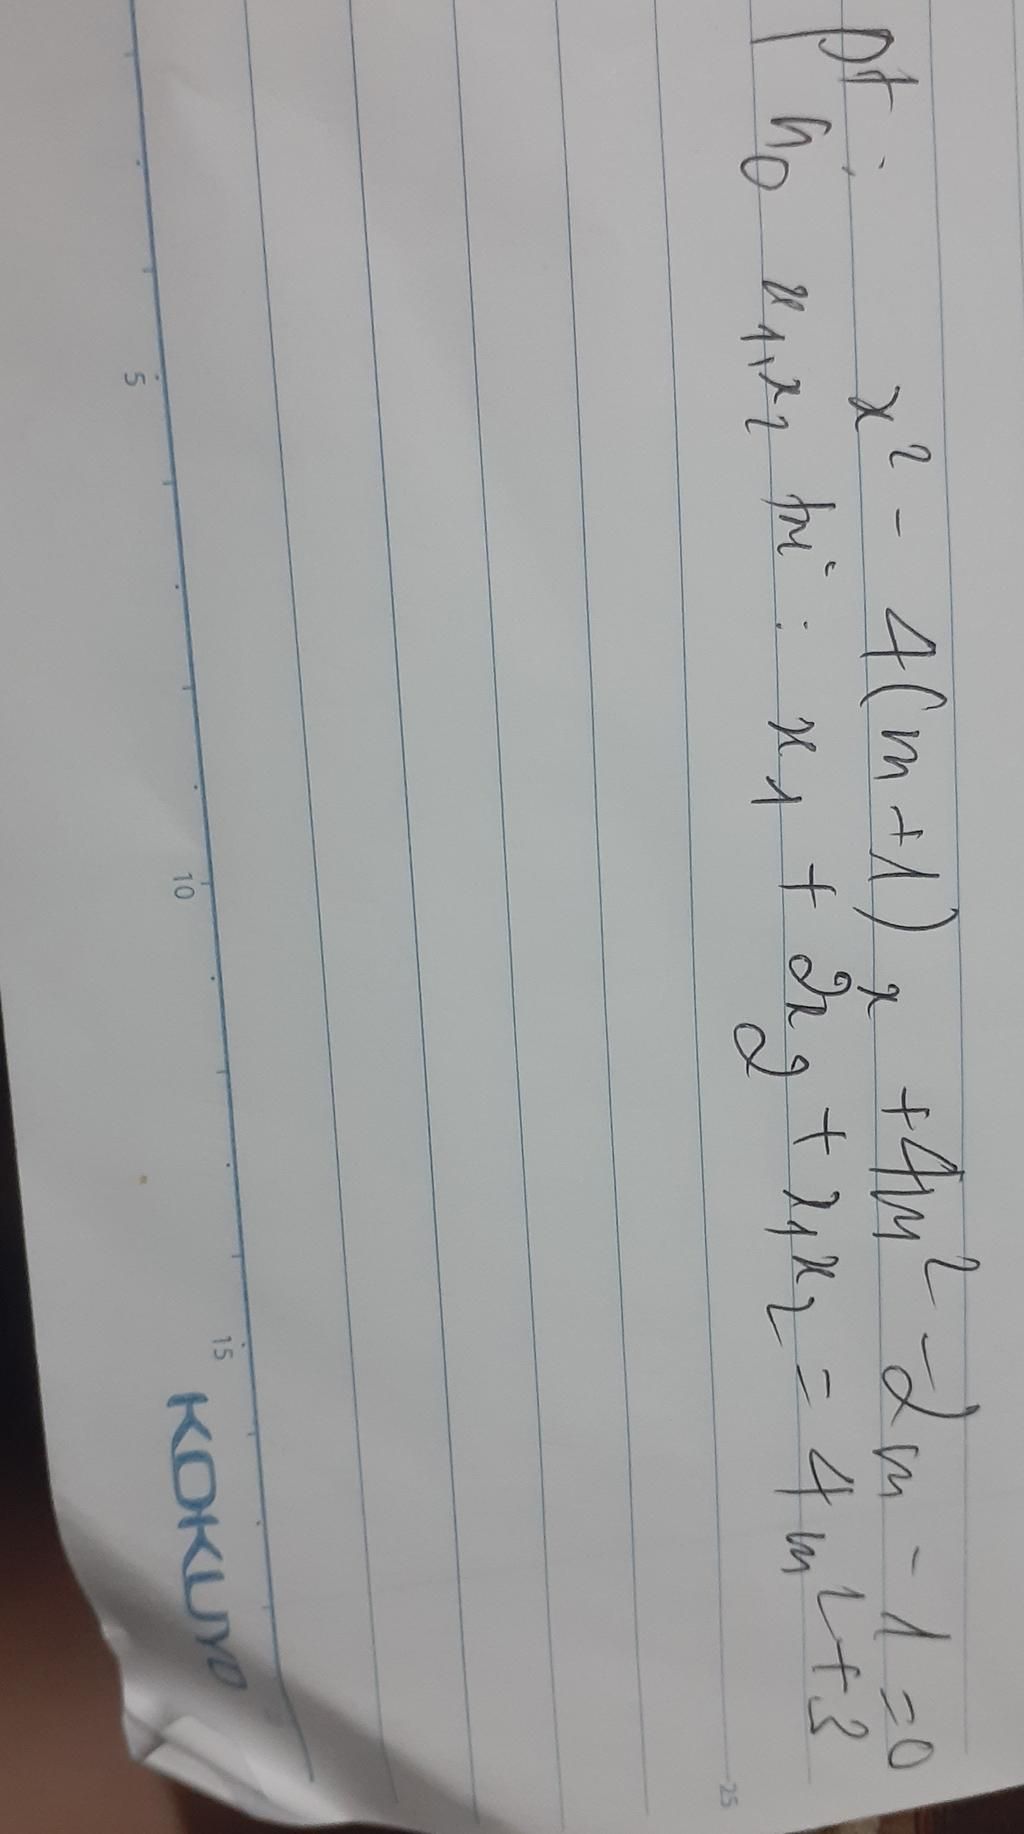 pt : x² - 4(m+1) x + 4m² - 2m - 1 = 0
no x₁, x₂ tm : x₁ + 2x₂ + x₁x₂ = 4m² + 3
2
25
5
10
15
KOKUYO